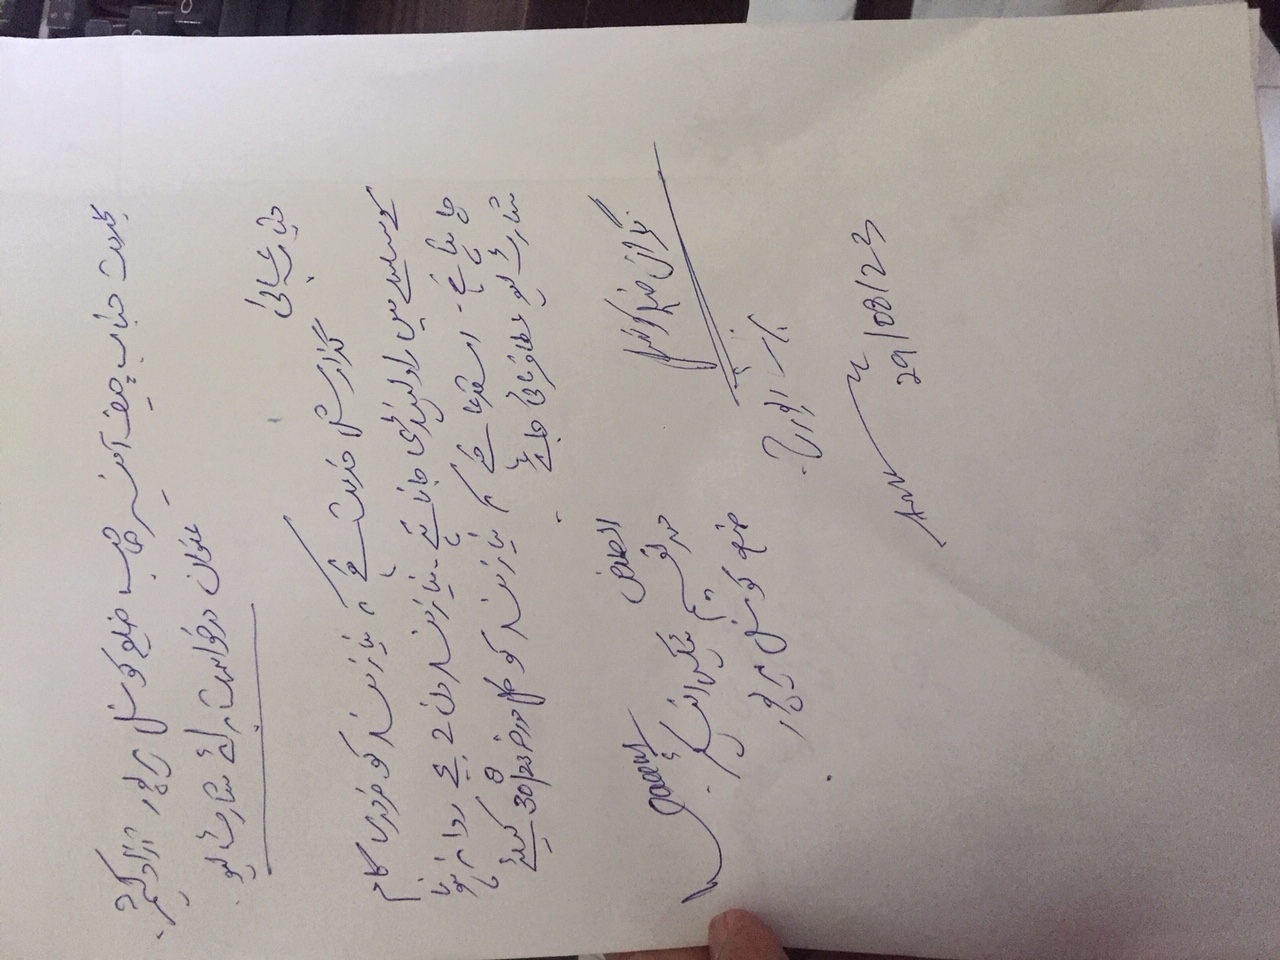 بخدمت جناب چیف آفیسر صاحب ضلع کونسل میرپور آزاد کشمیر۔
عنوان درخواست برائے شارٹ لیو۔
جناب عالی
گذارش خدمت ہے کہ نیازمند کو ضروری کام
کے سلسلے میں راولپنڈی جانا ہے۔ نیازمند دن 2 بجے روانہ ہونا
چاہتا ہے۔ استدعا ہے کہ نیازمند کو کل مورخہ 30/8/23 کیلئے
شارٹ لیو عطا فرمائی جائے۔
العارض
محمد قسیم ٹیکس آفیسر
ضلع کونسل میرپور
Qaseem
نگران ضلع کونسل
29/08/23